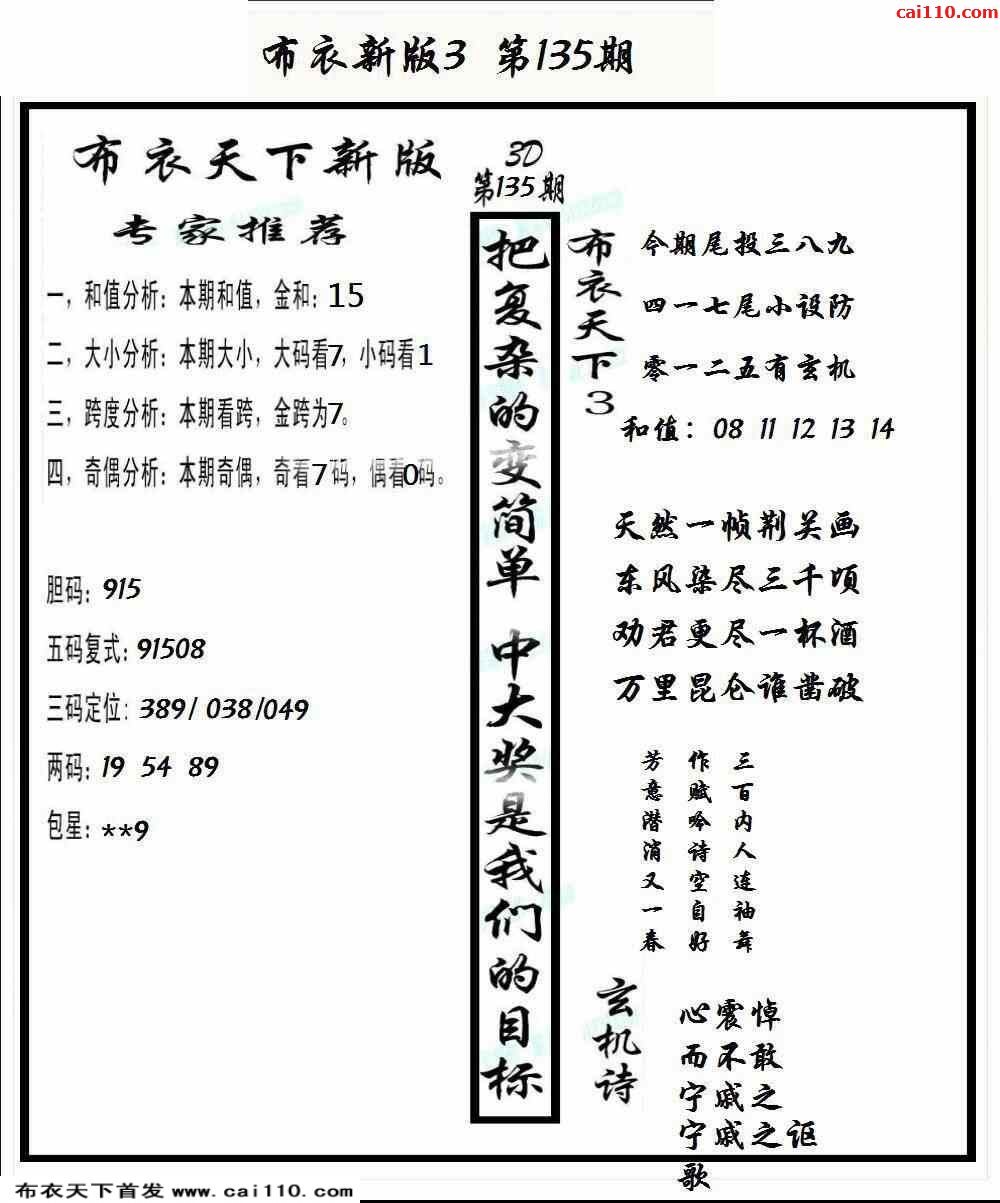 cai110.com
布衣新版3 第135期
布衣天下新版
专家推荐
一，和值分析：本期和值，金和：15
二，大小分析：本期大小，大码看7，小码看1
三，跨度分析：本期看跨，金跨为7。
四，奇偶分析：本期奇偶，奇看7码，偶看0码。
胆码：915
五码复式：91508
三码定位：389/ 038/049
两码：19 54 89
包星：**9
3D
第135期
把复杂的变简单 中大奖是我们的目标
布衣天下3
今期尾投三八九
四一七尾小设防
零一二五有玄机
和值：08 11 12 13 14
天然一帧荆关画
东风染尽三千顷
劝君更尽一杯酒
万里昆仑谁凿破
三百内人连袖舞
作赋吟诗空自好
芳意潜消又一春
玄机诗
心震悼
而不敢
宁戚之
宁戚之讴
歌
布衣天下首发 www.cai110.com